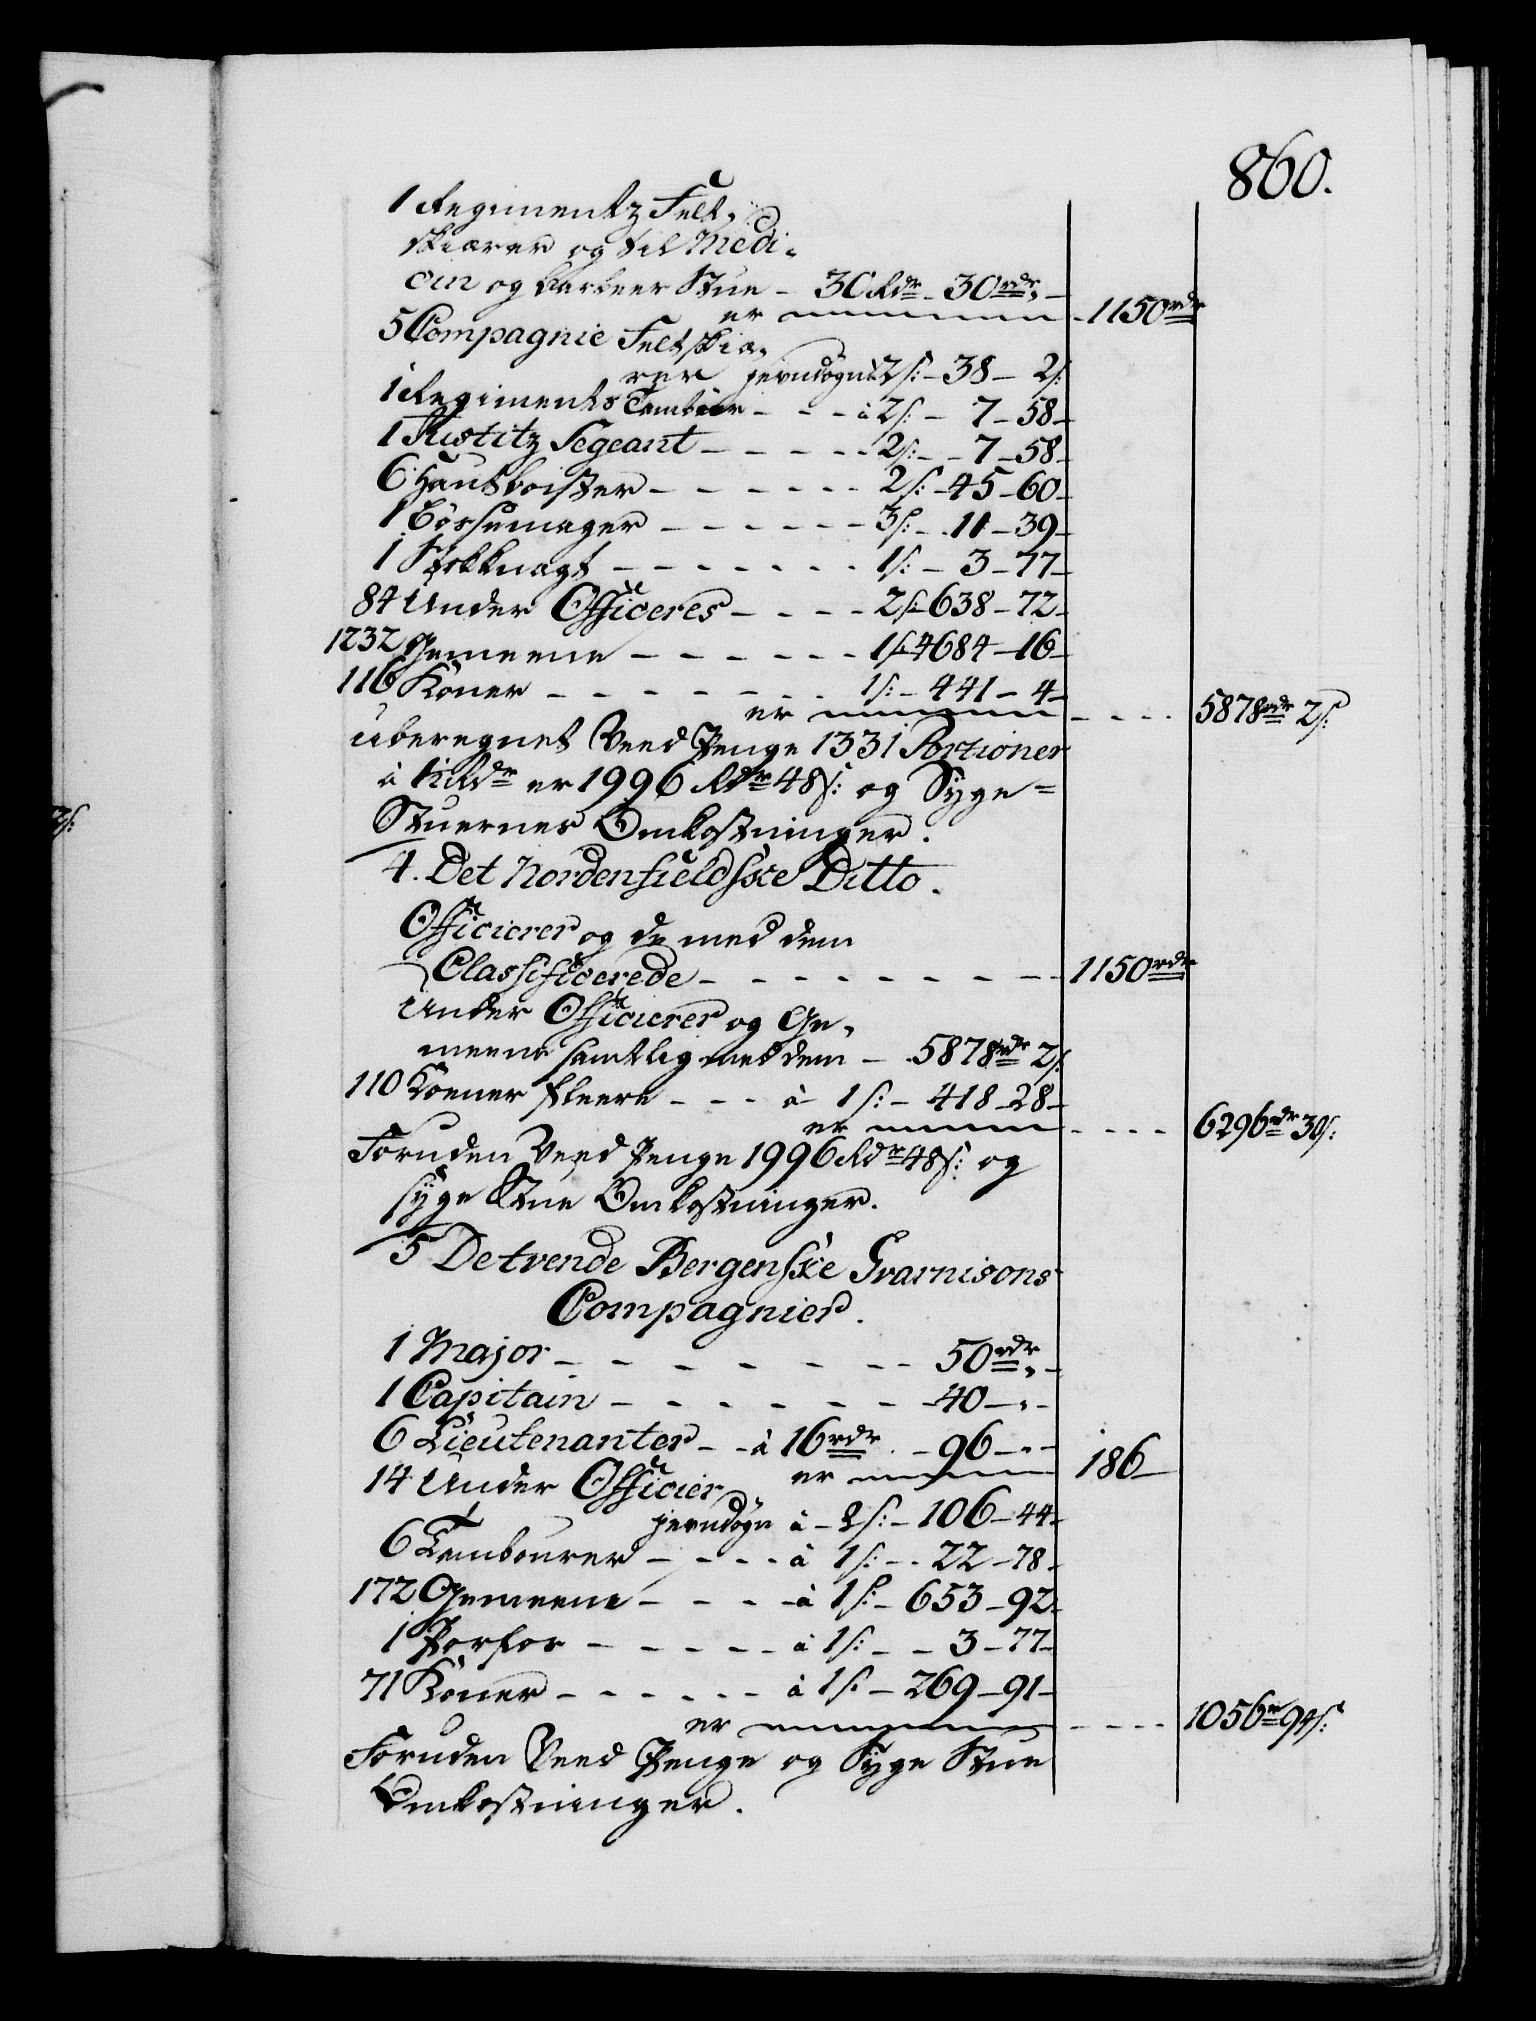 860.
1 Regimentz Felt,
skiærer og til Medi-
cin og barbeer Stue - 30 Rdr - 30 rdr, -
er - 1150 rdr
5 Compagnie Feltskiæ,
rer jevndøgn à 2 s: - 38 - 2 s:
1 Regiments Tambour - - - à 2 s: - 7 - 58 -
1 Justitz Segeant - - - - - 2 s: - - 7 - 58 -
6 Hautboister - - - - - - 2 s: - 45 - 60 -
1 Bøssemager - - - - - - 3 s: - . 11 - 39 -
1 Stokknægt - - - - - - - 1 s: - 3 - 77 -
84 Under Officeres - - - - 2 s: 638 - 72 -
1232 Gemeene - - - - - - 1 s: 4684 - 16 -
116 Koner - - - - - - - 1 s: - 441 - 4 -
er - - - - 5878 rdr 2 s:
uberegnet Veed Penge 1331 Portioner
à 1½ Rdr er 1996 Rdr 48 s: og Syge=
Stuernes Omkostninger.
4. Det Nordenfieldske Ditto.
Officierer og de med dem
Classificerede - - - - - - - - 1150 rdr
Under Officierer og Ge,
meene samtlig med dem - 5878 rdr 2 s:
110 Koener fleere - - - à 1 s: - 418 - 28 -
er - - - - 6296 rdr 30 s:
Foruden Veed Penge 1996 Rdr 48 s: og
syge Stue Omkostninger.
5 De tvende Bergenske Gvarnisons
Compagnier.
1 Major - - - - - - - 50 rdr, -
1 Capitain - - - - - - - 40 - , -
6 Lieutenanter - - à 16 rdr - 96 - , -
er 186 -
14 Under Officier
jevndøgn à - 2 s: - 106 - 44 -
6 Tambourer - - - - à 1 s: - . 22 - 78 -
172 Gemeene - - - - à 1 s: - 653 - 92 -
1 Porfor - - - - - à 1 s: - - 3 - 77 -
71 Koner - - - - - - à 1 s: - 269 - 91 -
er - - - - 1056 r 94 s:
Foruden Veed Penge og Syge Stue
Omkostninger.